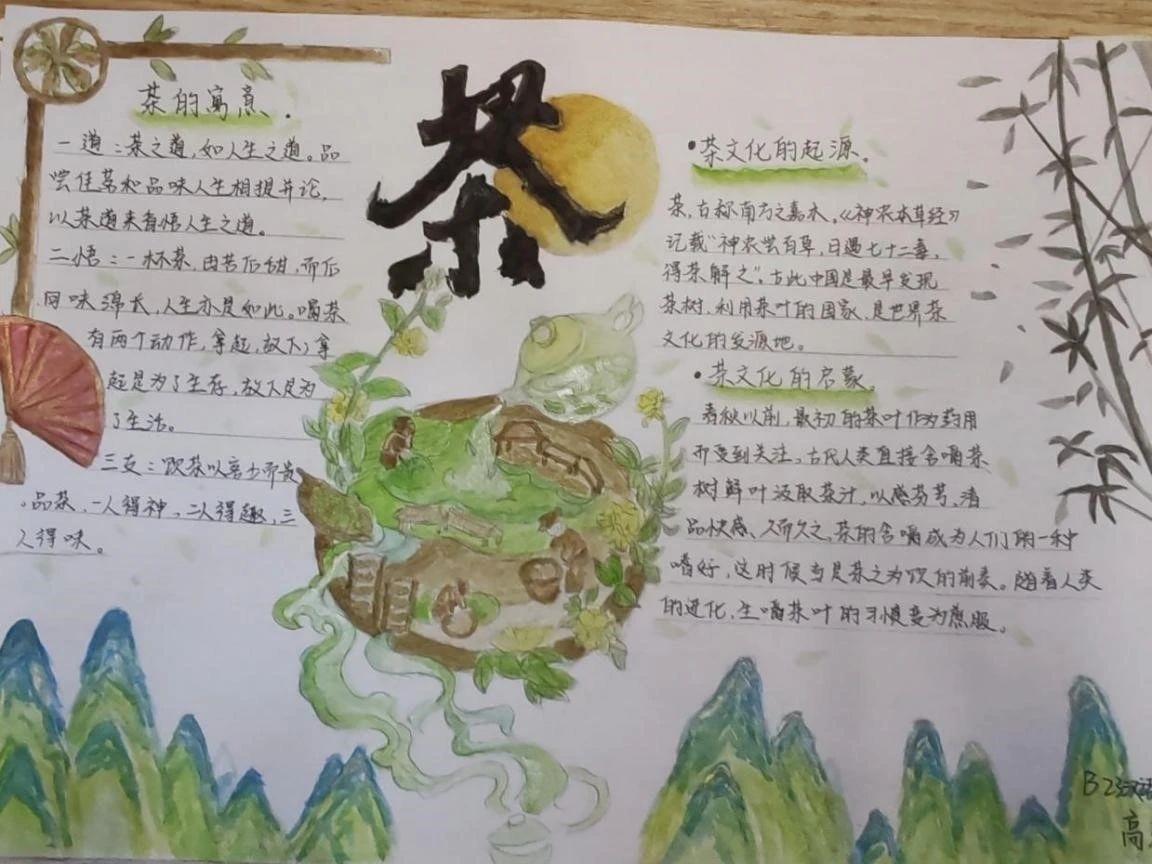 茶
茶的寓意.
一道：茶之道，如人生之道。品
尝佳茗和品味人生相提并论，
以茶道来看悟人生之道。
二悟：一杯茶，由苦后甜，而后
回味绵长，人生亦是如此。喝茶
有两个动作，拿起，放下，拿
起是为了生存，放下是为
了生活。
三支：饮茶以客少而贵
。品茶，一人得神，二人得趣，三
人得味。
•茶文化的起源.
茶，古称南方之嘉木。《神农本草经》
记载“神农尝百草，日遇七十二毒，
得茶解之”。古此中国是最早发现
茶树、利用茶叶的国家，是世界茶
文化的发源地。
•茶文化的启蒙.
春秋以前，最初的茶叶作为药用
而受到关注。古代人类直接含嚼茶
树鲜叶汲取茶汁，以感芬芳、清
品快感，久而久之，茶的含嚼成为人们的一种
嗜好，这时候当是茶之为饮的前奏。随着人类
的进化，生嚼茶叶的习惯变为煎服。
B23汉语
高